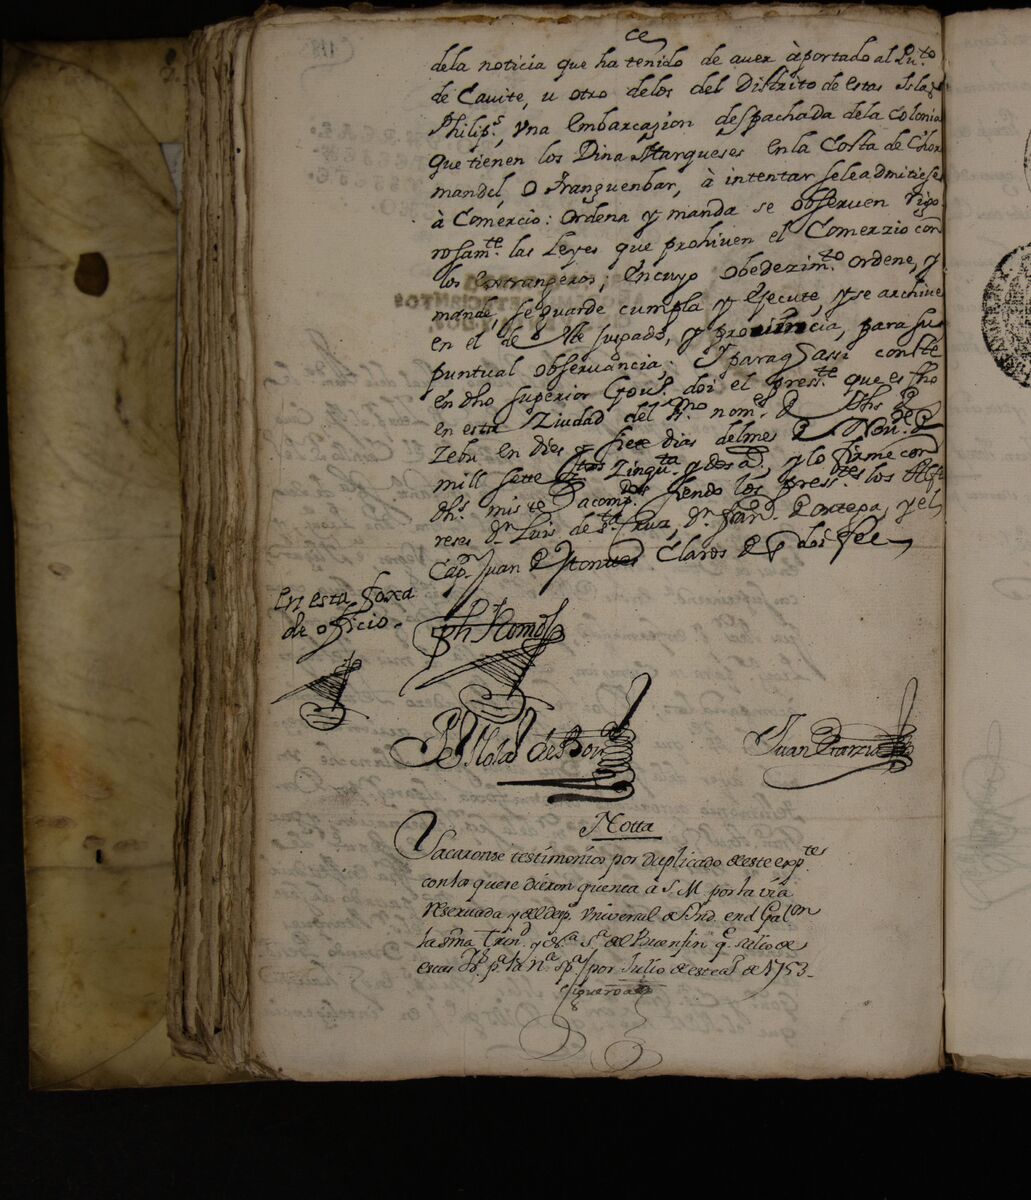 dela noticia que ha tenido de aver àportado al Pu.to
de Cavite, u otro delos del Distrito de estas Islas
Philip.s vna Embarcazion despachada dela Colonia
que tienen los Dina Marqueses en la Costa de Choro
mandel, o Tranguenbar, à intentar seleadmitiese
à Comercio: ordena y manda se observen rigo
rosam.te las Leyes que prohiven el Comerzio con
los extrangeros, encuyo obedezim.to ordene, y
mande, se guarde cumpla y execute, y se archive
en el de juspado, y provincia, para su
puntual observancia; Y para q assi conste
en dho superior Gov.no doi el press.te que es fho
en esta Ziudad del ss.mo nom.e
Zebu en dies y siete dias del mes Nov.e
mill sette ztos zinqu.ta y dos a.s, y lo firme con
dhs. mis te acomp.dos siendo los press.tes los Alfe
reses D.n Luis de s.ta Cruz, D.n Fran.co ortega, y el
Cap.n Juan Montues Claros doi fee
en esta foxa
de oficio.
Juan Garzia
Notta
Sacaronse testimonios por duplicado de este exp.tes
con los que se dieron quenta à S. M. por la via
reservada y del desp.o vniversal de Ynd. en el Galeon
la ss.ma Trin.d y N.a S.a del Buenfin q.e salio de
estas Ys. p.a la N.a Sp.a por Julio de este a.o de 1753.
Figueroa